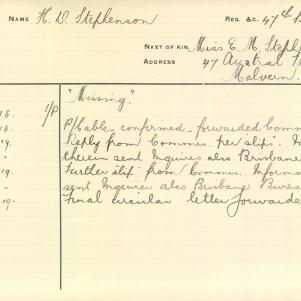 NAME H. D. Stephenson REG. &C. 47th
NEXT OF KIN, Miss E. M. Steph
ADDRESS 47 Austral
Malvern.
"Missing."
18. 1/P P/Cable confirmed - forwarded Comm
18. Reply from Commrs. per slip.
19. therein sent Inquirer also Brisbane
" Further slip from Commrs. Informa
" sent Inquirer also Brisbane Bureau
19 Final circular letter forwarde